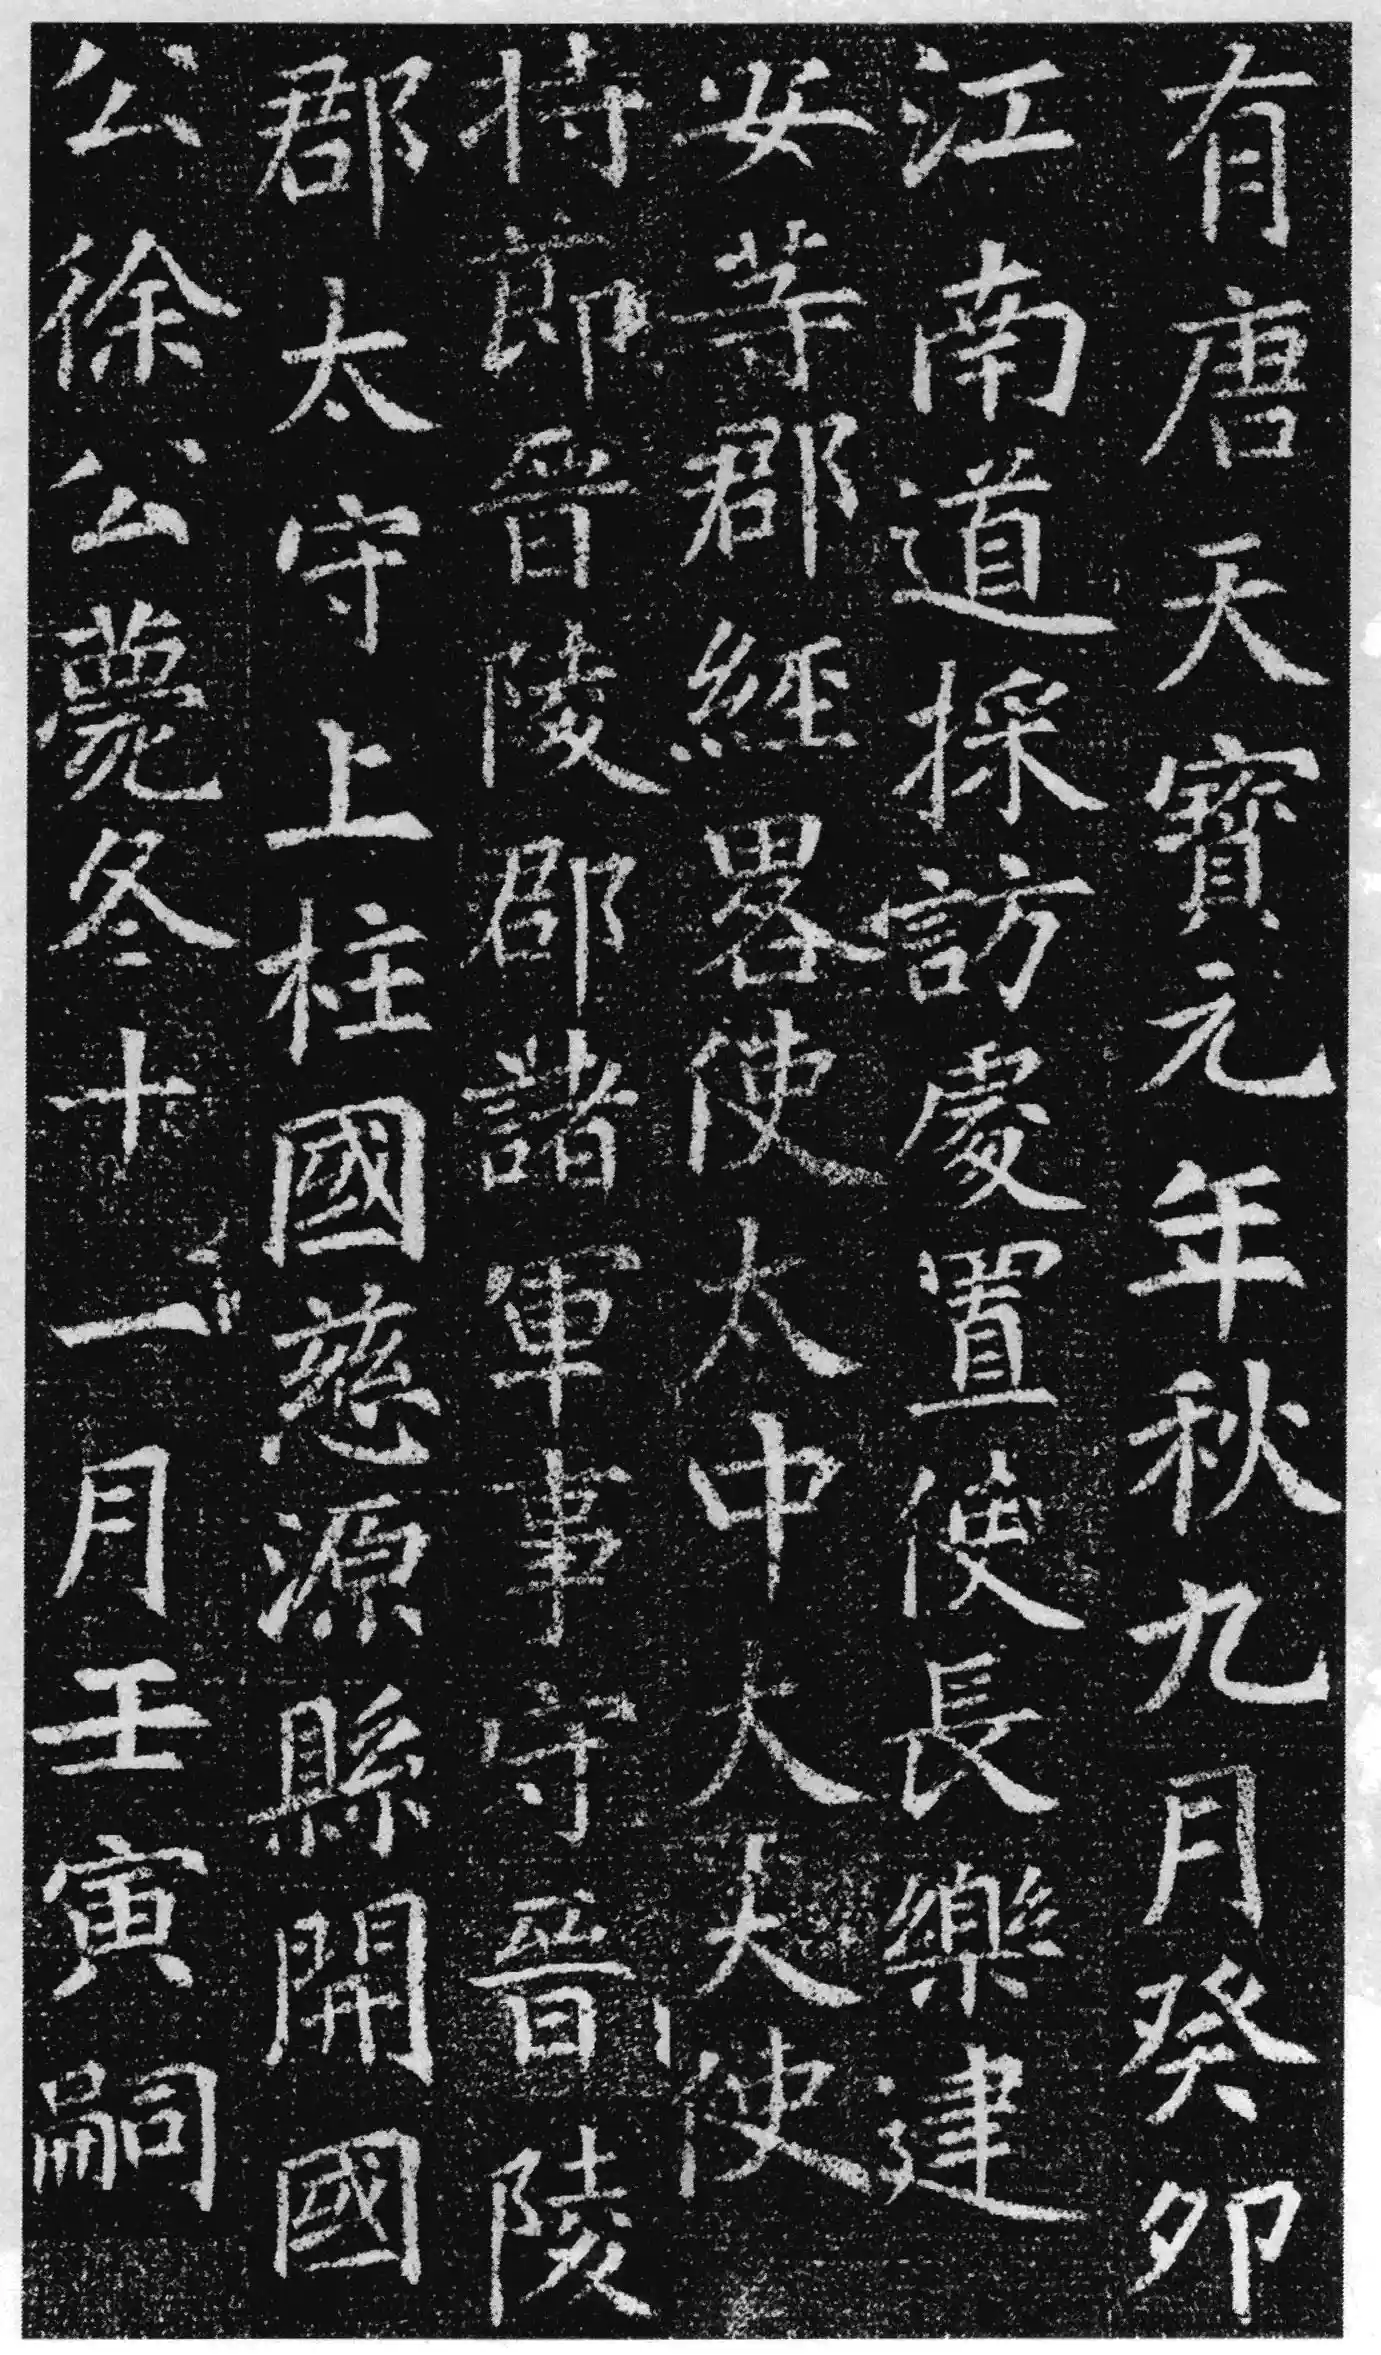 有唐天寶元年秋九月癸卯
江南道採訪處置使長樂建
安等郡經畧使太中大夫使
持節晉陵郡諸軍事守晉陵
郡太守上柱國慈源縣開國
公徐公薨冬十一月壬寅嗣